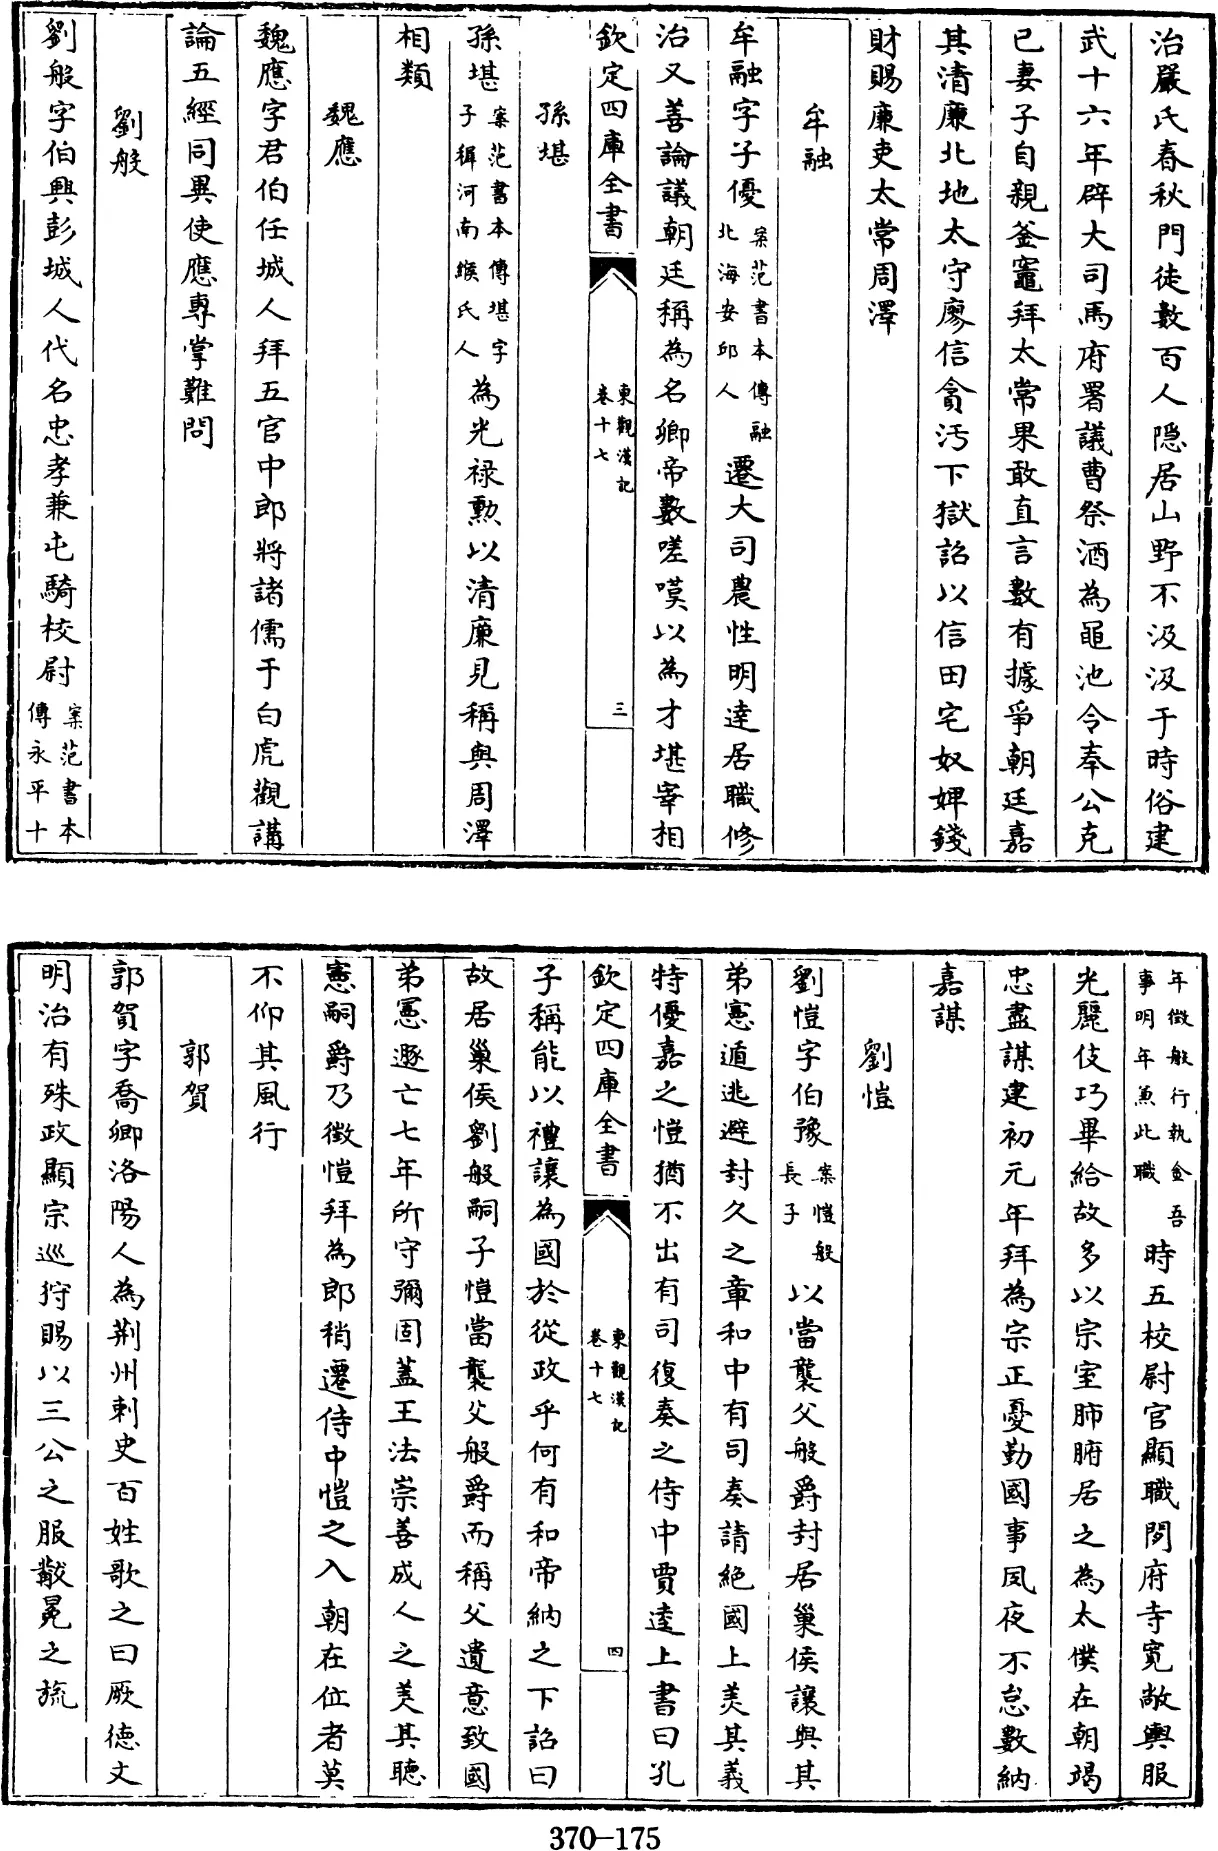 治嚴氏春秋門徒數百人隱居山野不汲汲于時俗建
武十六年辟大司馬府署議曹祭酒為黽池令奉公克
已妻子自親釜竈拜太常果敢直言數有據爭朝廷嘉
其清廉北地太守廖信貪汚下獄詔以信田宅奴婢錢
財賜廉吏太常周澤
牟融
牟融字子優案范書本傳融北海安邱人遷大司農性明達居職修
治又善論議朝廷稱為名卿帝數嗟嘆以為才堪宰相
欽定四庫全書 東觀漢記卷十七 三
孫堪
孫堪案范書本傳堪字子穉河南緱氏人為光祿勲以清廉見稱與周澤
相類
魏應
魏應字君伯任城人拜五官中郎將諸儒于白虎觀講
論五經同異使應專掌難問
劉般
劉般字伯興彭城人代名忠孝兼屯騎校尉案范書本傳永平十
年徵般行執金吾事明年兼此職時五校尉官顯職閒府寺寬敞輿服
光麗伎巧畢給故多以宗室肺腑居之為太僕在朝竭
忠盡謀建初元年拜為宗正憂勤國事夙夜不怠數納
嘉謀
劉愷
劉愷字伯豫案愷般長子以當襲父般爵封居巢侯讓與其
弟憲遁逃避封久之章和中有司奏請絶國上美其義
特優嘉之愷猶不出有司復奏之侍中賈逵上書曰孔
欽定四庫全書 東觀漢記卷十七 四
子稱能以禮讓為國於從政乎何有和帝納之下詔曰
故居巢侯劉般嗣子愷當襲父般爵而稱父遺意致國
弟憲遯亡七年所守彌固蓋王法崇善成人之美其聽
憲嗣爵乃徵愷拜為郎稍遷侍中愷之入朝在位者莫
不仰其風行
郭賀
郭賀字喬卿洛陽人為荆州刺史百姓歌之曰厥德文
明治有殊政顯宗巡狩賜以三公之服黻冕之旒
370-175